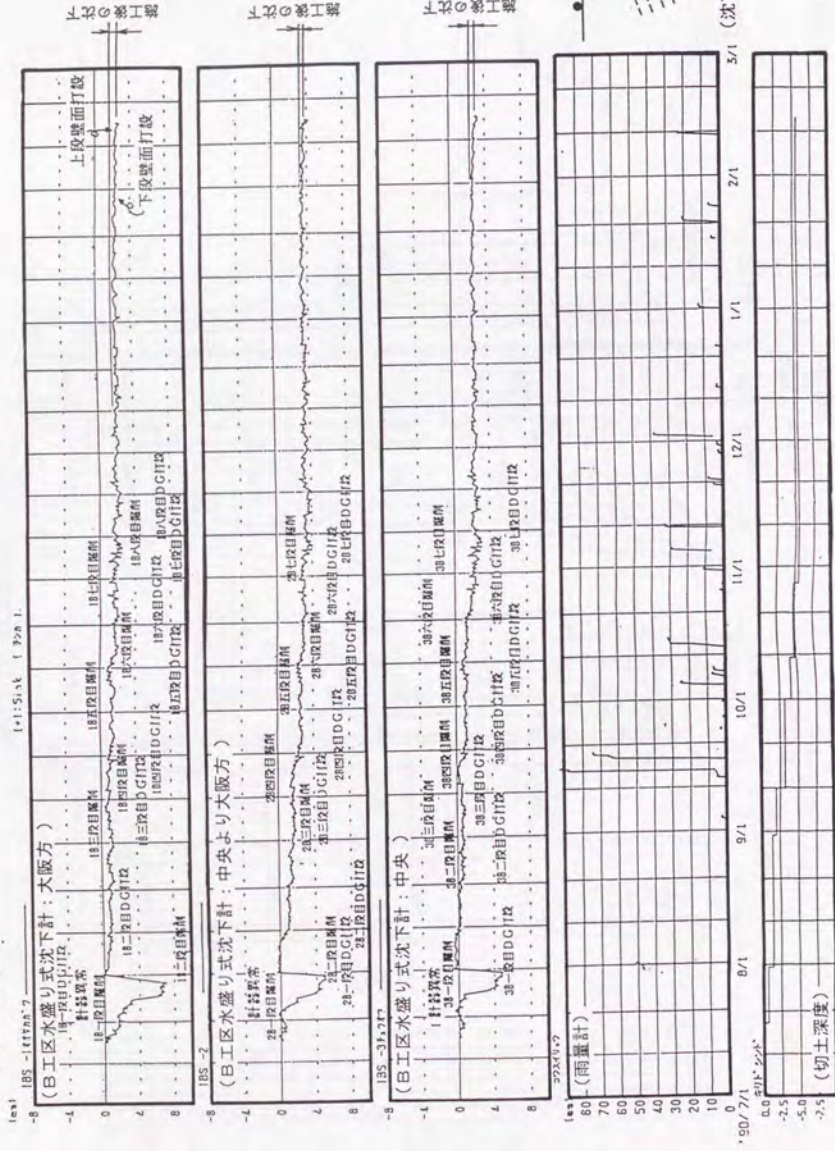 (+):Sink
(mm)
竣工後の沈下
IBS -1
(B工区水盛り式沈下計:大阪方)
-8
-4
0
4
8
計器異常
1B一段目DG打設
1B一段目掘削
1B二段目DG打設
1B三段目掘削
1B三段目DG打設
1B四段目掘削
1B四段目DG打設
1B五段目掘削
1B五段目DG打設
1B六段目掘削
1B六段目DG打設
1B七段目掘削
1B七段目DG打設
1B八段目掘削
1B八段目DG打設
上段壁面打設
下段壁面打設
竣工後の沈下
IBS -2
(B工区水盛り式沈下計:中央より大阪方)
-8
-4
0
4
8
計器異常
2B一段目掘削
2B一段目DG打設
2B二段目掘削
2B二段目DG打設
2B三段目掘削
2B三段目DG打設
2B四段目掘削
2B四段目DG打設
2B五段目掘削
2B五段目DG打設
2B六段目掘削
2B六段目DG打設
2B七段目掘削
2B七段目DG打設
竣工後の沈下
IBS -3チュウオウ
(B工区水盛り式沈下計:中央)
-8
-4
0
4
8
計器異常
3B一段目掘削
3B一段目DG打設
3B二段目掘削
3B二段目DG打設
3B三段目掘削
3B三段目DG打設
3B四段目掘削
3B四段目DG打設
3B五段目掘削
3B五段目DG打設
3B六段目掘削
3B六段目DG打設
3B七段目掘削
3B七段目DG打設
コウスイリョウ
(mm)
(雨量計)
80
70
60
50
40
30
20
10
0
'90/7/1
8/1
9/1
10/1
11/1
12/1
1/1
2/1
3/1
(沈
キリドシンド
(切土深度)
0.0
-2.5
-5.0
-7.5